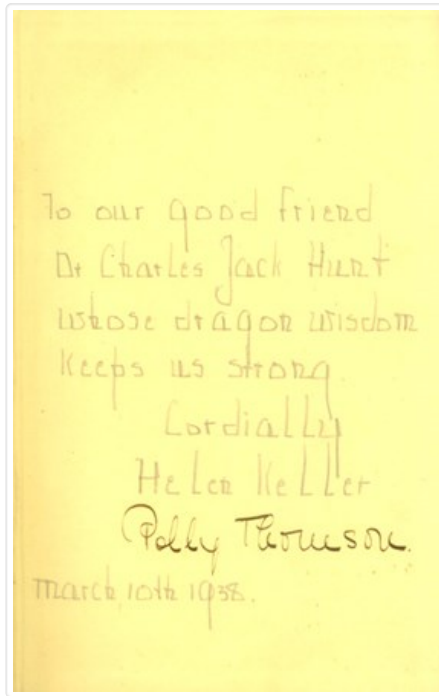 To our good friend
Dr Charles Jack Hunt
whose dragon wisdom
keeps us strong
Cordially
Helen Keller
Polly Thomson.
March 10th 1938.